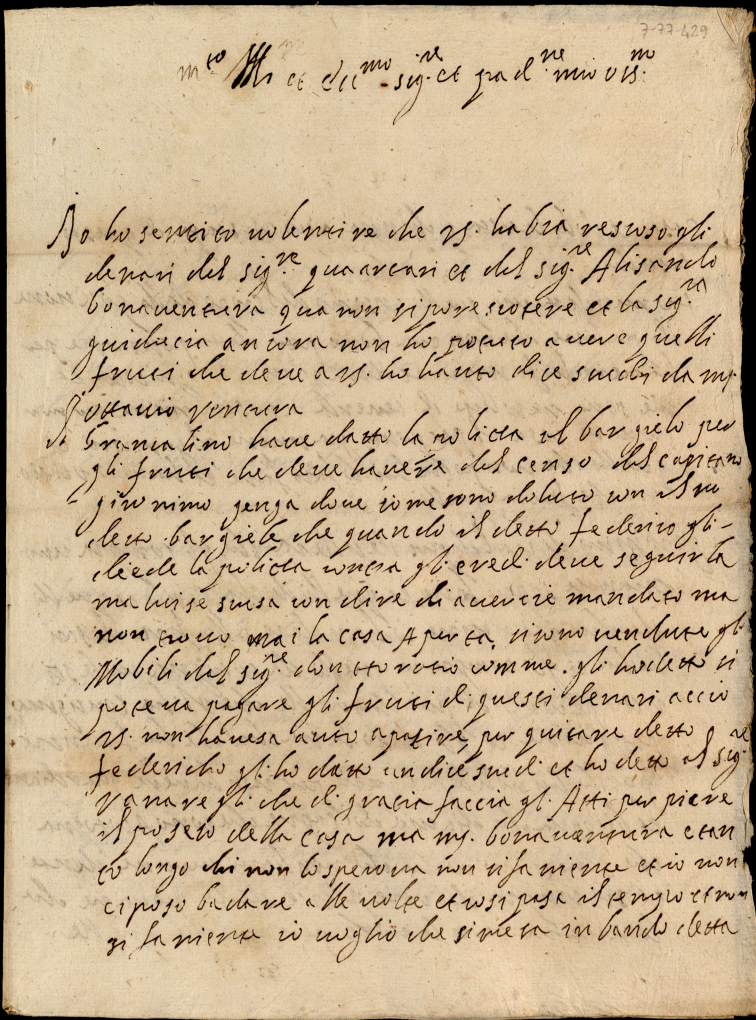 7-77-429
m.to Ill. et ecc.mo sig.re et pad.ne mio oss.mo
Io ho sentito volentire che vs. habia rescoso gli
denari del sig.re quaartari et del sig.re Alisandro
bonaventura qua non si po rescotere et la sig.ra
guiducia ancora non ho potuto avere quelli
frutti che deve a vs. ho hauto dice scudi da mr.
ottavio ventura
brancalino have datto la policta al bargielo per
gli frutti che deve havere del censo del capitano
gironimo genga dove io me sono doluto con il
detto bargiele che quando il detto federico gli
diede la policta contra gli eredi deve seguirla
ma lui se scusa con dire di averci mandato ma
non trovo mai la casa Aperta, si sono vendute gli
Mobili del sig.re don ttoratio comme gli ho detto si
poteva pagare gli frutti di questi denari accio
vs. non havesa auto a patire, per quitare detto
federicho gli ho datto undici scudi et ho detto al sig.re
ranaregli che di gracia faccia gl. Atti per piere
il poseso della casa ma mr. bonaventura e tan
to longo chi non lo sperona non si fa niente et io non
ci poso badare alle volte et cosi pasa il tempo et non
si fa niente io voglio che si meta in bando detta